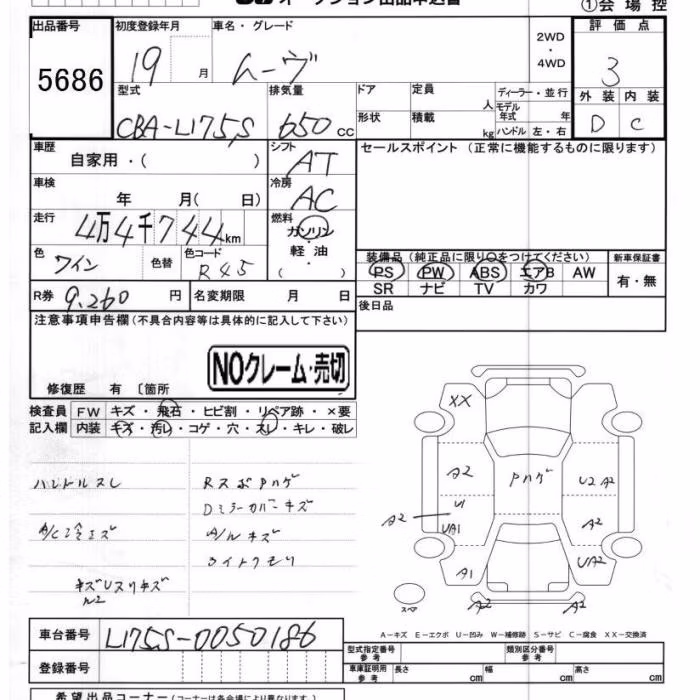 オークション出品申込書
①会場控
出品番号
5686
初度登録年月
19 月
車名・グレード
ムーヴ
2WD
・
4WD
評価点
3
外装 内装
D C
型式
CBA-L175S
排気量
650 cc
ドア
形状
定員
人
積載
kg
ディーラー・並行
モデル年式 年
ハンドル 左・右
車歴
自家用・( )
シフト
AT
セールスポイント (正常に機能するものに限ります)
車検
年 月( 日)
冷房
AC
走行
4万4千744km
燃料
ガソリン
・
軽油
( )
色
ワイン
色替
色コード
R45
装備品 (純正品に限り○をつけてください)
PS PW ABS エアB AW
SR ナビ TV カワ
新車保証書
有・無
R券 9,260 円
名変期限 月 日
後日品
注意事項申告欄 (不具合内容等は具体的に記入して下さい)
NOクレーム・売切
修復歴 有 〔箇所
検査員
記入欄
FW キズ・飛石・ヒビ割・リペア跡・×要
内装 キズ・汚レ・コゲ・穴・スレ・キレ・破レ
ハンドルスレ
RスポPハゲ
Dミラーカバーキズ
A/C冷エズ
A/Wキズ
ライトクモリ
XX
A2
Pハゲ
U2 A2
U1
A2
UA1
A2
A1
UA2
スペア
A2
A2
A-キズ E-エクボ U-凹み W-補修跡 S-サビ C-腐食 XX-交換済
車台番号
L175S-0050186
登録番号
型式指定番号
参考
類別区分番号
参考
車庫証明用
参考
長さ cm
幅 cm
高さ cm
希望出品コーナー (コーナーは各会場により異なります。)